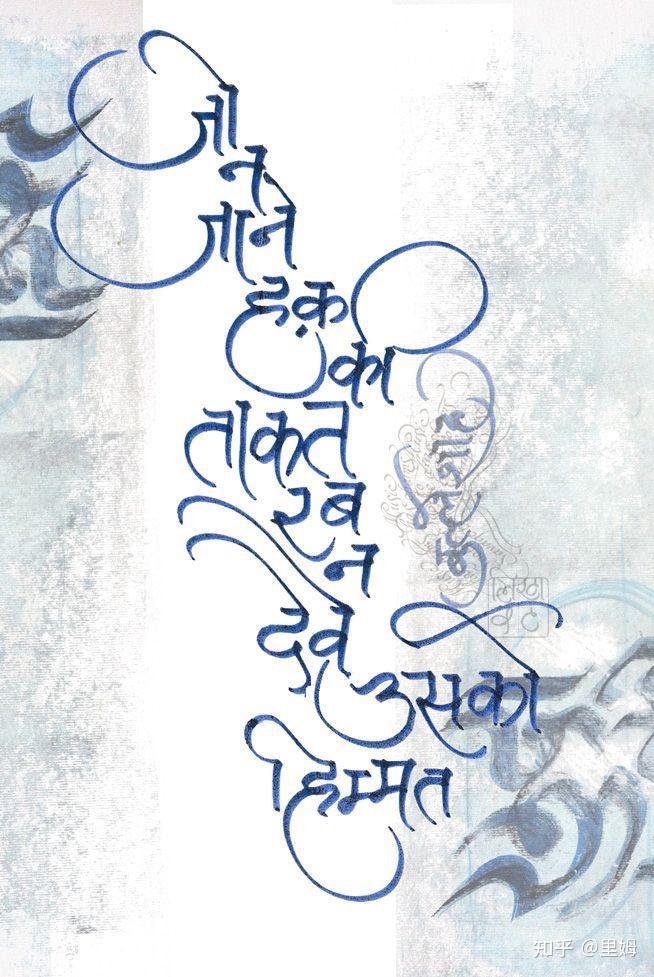 जो
न
जाने
हक़
की
ताकत
रब
न
देवे
उसको
हिम्मत
बुल्लेशाह
知乎 @里姆